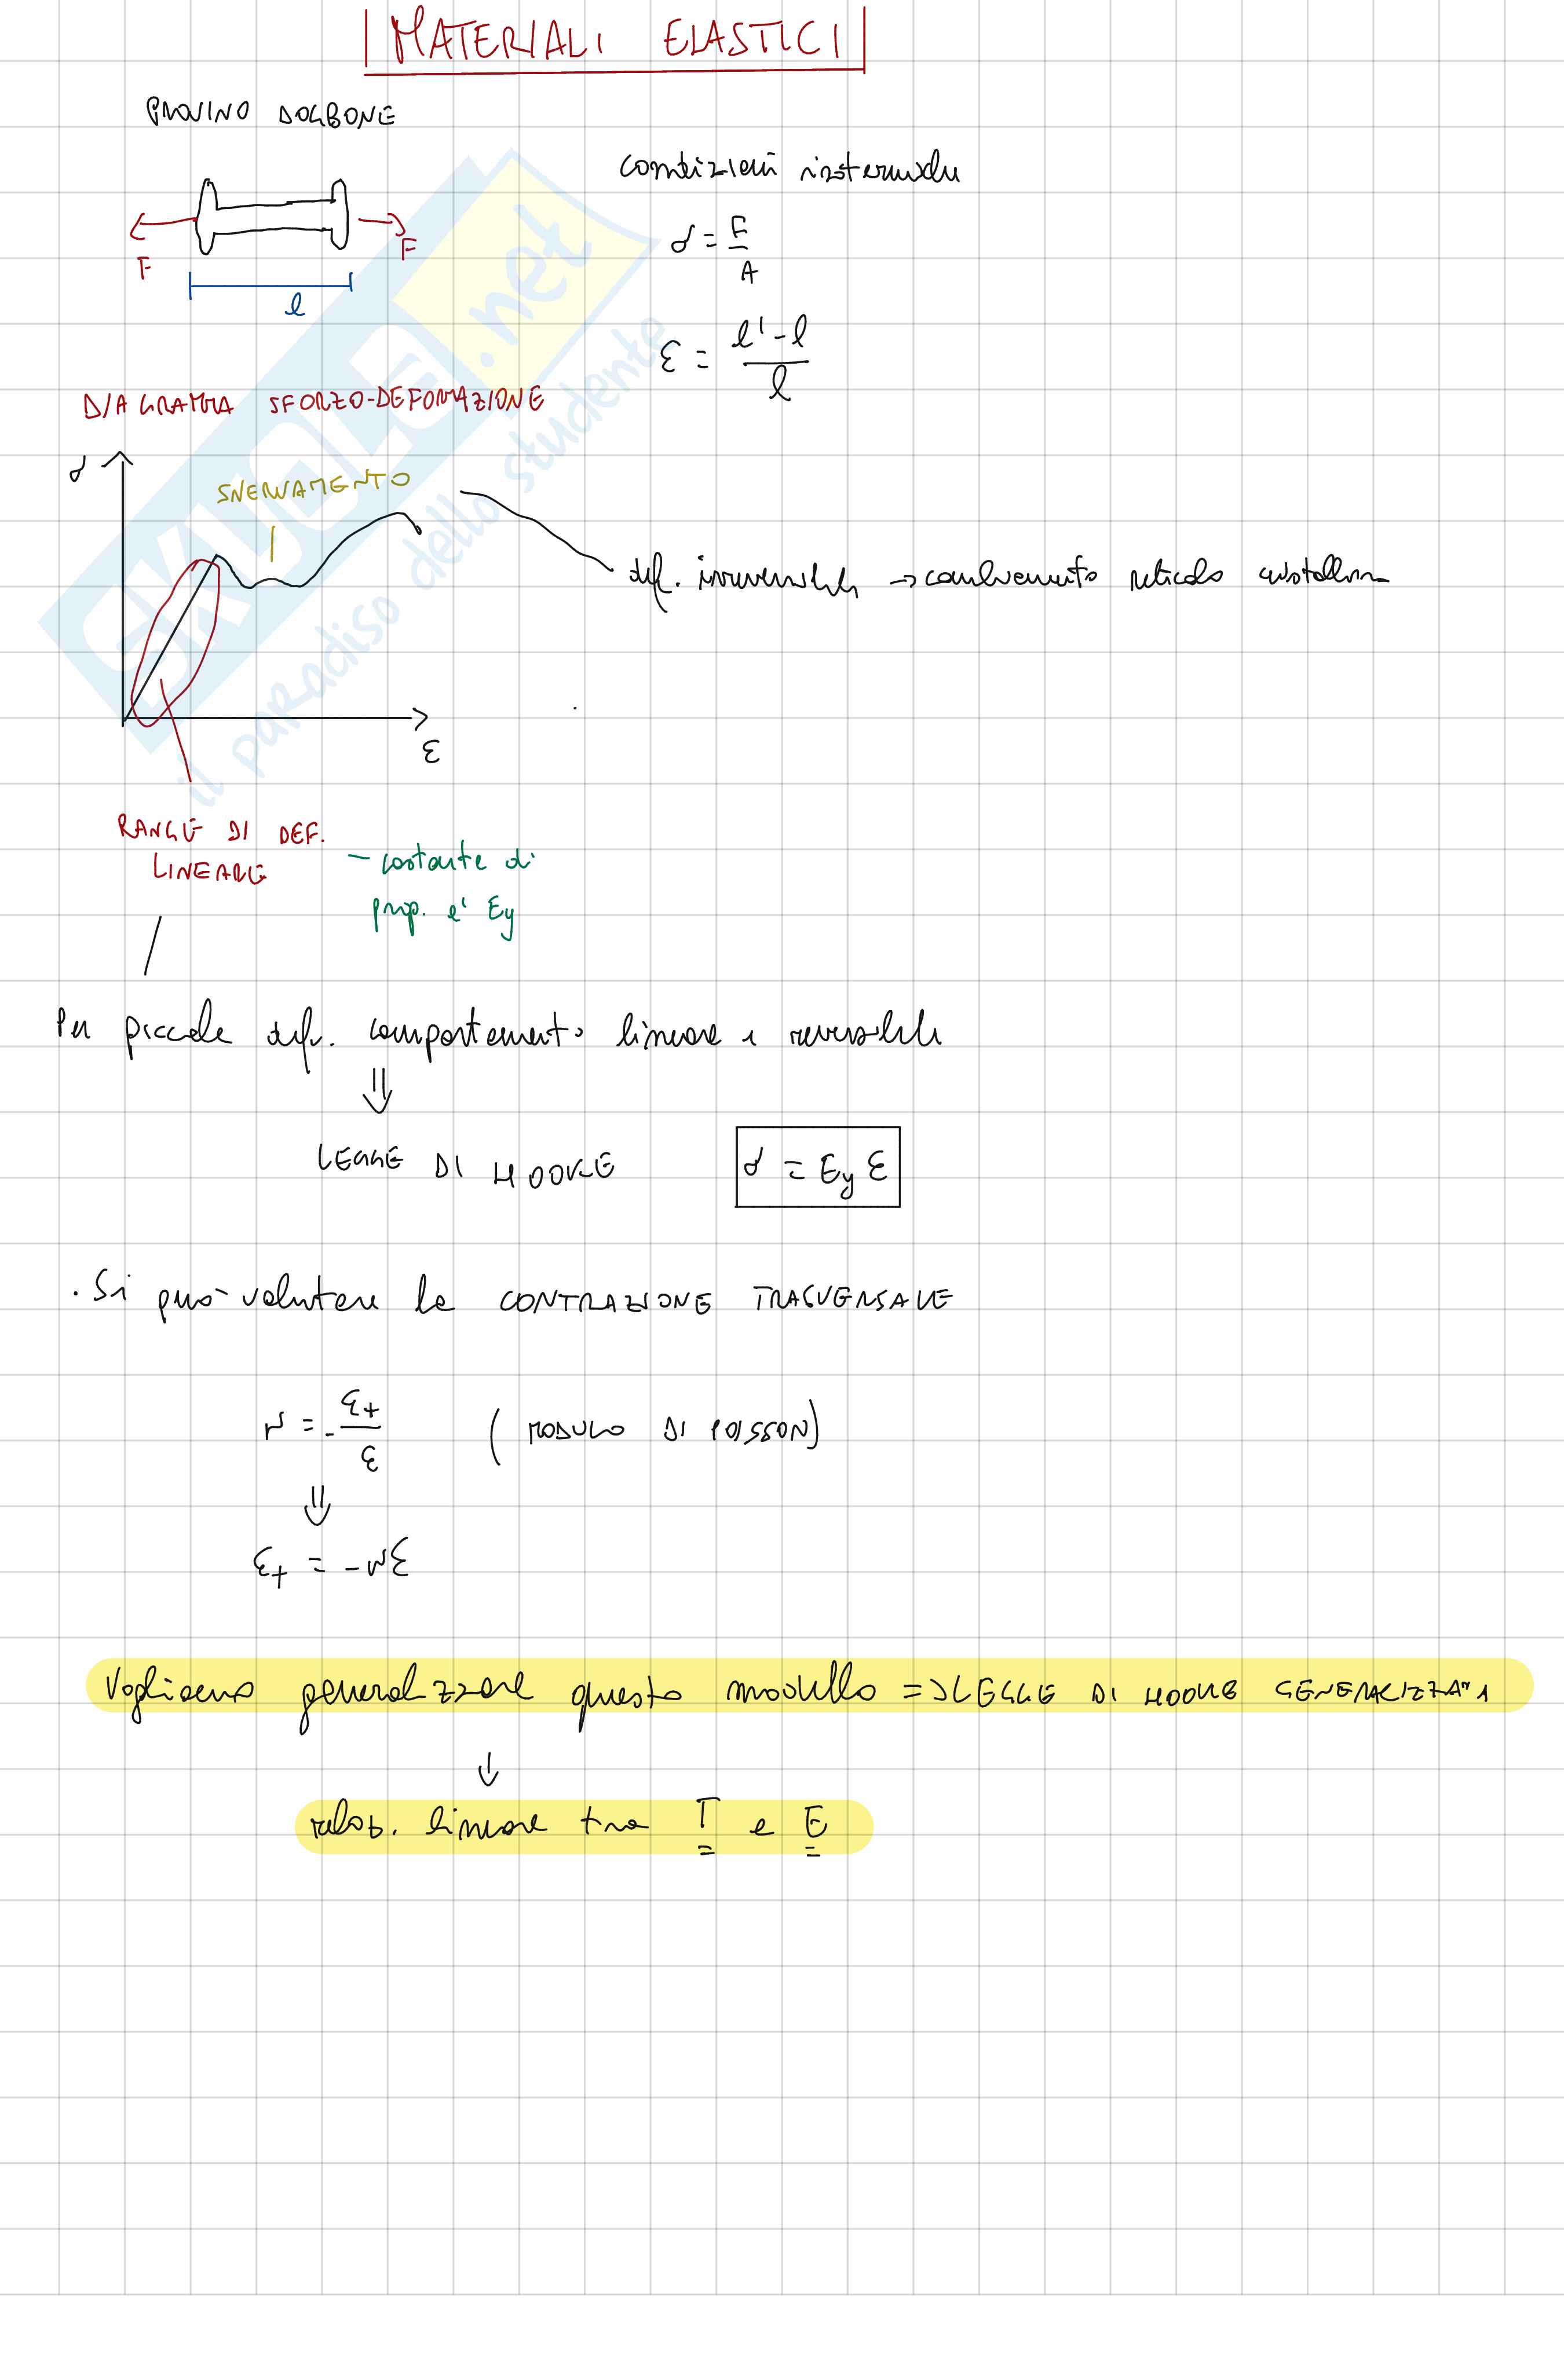 MATERIALI ELASTICI
PROVINO DOGBONE
condizioni isoterme
F
F
l
σ = F/A
ε = (l' - l)/l
DIAGRAMMA SFORZO-DEFORMAZIONE
σ
SNERVAMENTO
def. irreversibili → cambiamento reticolo cristallino
ε
RANGE DI DEF.
LINEARE
- costante di
prop. e' Ey
Per piccole def. comportamento lineare e reversibile
⇓
LEGGE DI HOOKE
σ = Ey ε
. Si può valutare la CONTRAZIONE TRASVERSALE
ν = - εt/ε (MODULO DI POISSON)
⇓
εt = -νε
Vogliamo generalizzare questo modello => LEGGE DI HOOKE GENERALIZZATA
↓
relaz. lineare tra T e E
SKUOLA.net
il paradiso dello studente